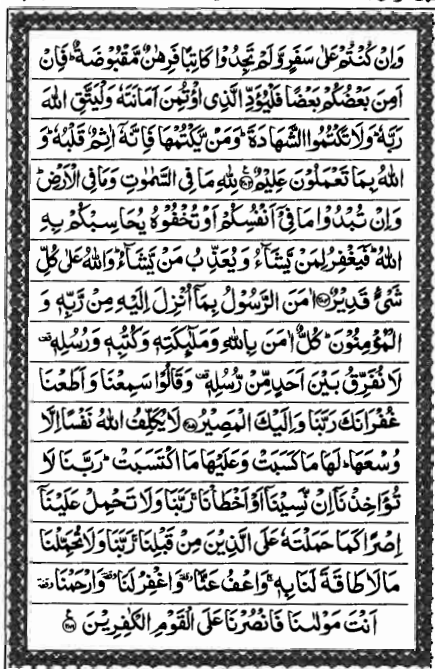 وَاِنْ كُنْتُمْ عَلٰى سَفَرٍ وَّلَمْ تَجِدُوْا كَاتِبًا فَرِهٰنٌ مَّقْبُوْضَةٌ ؕ فَاِنْ
اَمِنَ بَعْضُكُمْ بَعْضًا فَلْيُؤَدِّ الَّذِى اؤْتُمِنَ اَمَانَتَهٗ وَلْيَتَّقِ اللّٰهَ
رَبَّهٗ ؕ وَلَا تَكْتُمُوا الشَّهَادَةَ ؕ وَمَنْ يَّكْتُمْهَا فَاِنَّهٗۤ اٰثِمٌ قَلْبُهٗ ؕ وَ
اللّٰهُ بِمَا تَعْمَلُوْنَ عَلِيْمٌ ﴿۲۸۳﴾ لِلّٰهِ مَا فِى السَّمٰوٰتِ وَمَا فِى الْاَرْضِ ؕ
وَاِنْ تُبْدُوْا مَا فِىْۤ اَنْفُسِكُمْ اَوْ تُخْفُوْهُ يُحَاسِبْكُمْ بِهِ
اللّٰهُ ؕ فَيَغْفِرُ لِمَنْ يَّشَآءُ وَيُعَذِّبُ مَنْ يَّشَآءُ ؕ وَاللّٰهُ عَلٰى كُلِّ
شَىْءٍ قَدِيْرٌ ﴿۲۸۴﴾ اٰمَنَ الرَّسُوْلُ بِمَاۤ اُنْزِلَ اِلَيْهِ مِنْ رَّبِّهٖ وَ
الْمُؤْمِنُوْنَ ؕ كُلٌّ اٰمَنَ بِاللّٰهِ وَمَلٰٓئِكَتِهٖ وَكُتُبِهٖ وَرُسُلِهٖ قف
لَا نُفَرِّقُ بَيْنَ اَحَدٍ مِّنْ رُّسُلِهٖ قف وَقَالُوْا سَمِعْنَا وَاَطَعْنَا
غُفْرَانَكَ رَبَّنَا وَاِلَيْكَ الْمَصِيْرُ ﴿۲۸۵﴾ لَا يُكَلِّفُ اللّٰهُ نَفْسًا اِلَّا
وُسْعَهَا ؕ لَهَا مَا كَسَبَتْ وَعَلَيْهَا مَا اكْتَسَبَتْ ؕ رَبَّنَا لَا
تُؤَاخِذْنَاۤ اِنْ نَّسِيْنَاۤ اَوْ اَخْطَاْنَا ۚ رَبَّنَا وَلَا تَحْمِلْ عَلَيْنَاۤ
اِصْرًا كَمَا حَمَلْتَهٗ عَلَى الَّذِيْنَ مِنْ قَبْلِنَا ۚ رَبَّنَا وَلَا تُحَمِّلْنَا
مَا لَا طَاقَةَ لَنَا بِهٖ ۚ وَاعْفُ عَنَّا وقفة وَاغْفِرْ لَنَا وقفة وَارْحَمْنَا وقفة
اَنْتَ مَوْلٰىنَا فَانْصُرْنَا عَلَى الْقَوْمِ الْكٰفِرِيْنَ ﴿۲۸۶﴾